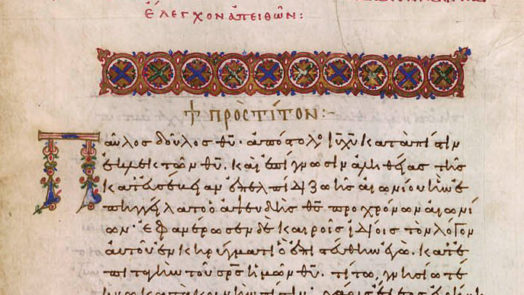 ἔλεγχον ἀπειθῶν:
† πρὸς τίτον:-
Παῦλος δοῦλος θυ. ἀπόστολος ιυ χυ κατὰ πίστιν
ἐκλεκτῶν θυ. καὶ ἐπίγνωσιν ἀληθείας τῆς
κατ' εὐσέβειαν ἐπ' ἐλπίδι ζωῆς αἰωνίου ἣν ἐ
πηγγείλατο ὁ ἀψευδὴς θς πρὸ χρόνων αἰωνί
ων· ἐφανέρωσεν δὲ καιροῖς ἰδίοις τὸν λόγον
αὐτοῦ ἐν κηρύγματι ὃ ἐπιστεύθην ἐγώ. κατ' ἐ
πιταγὴν τοῦ σρς ἡμῶν θυ. τίτω, γνησίω τέ
κνω κατὰ κοινὴν πίστιν.